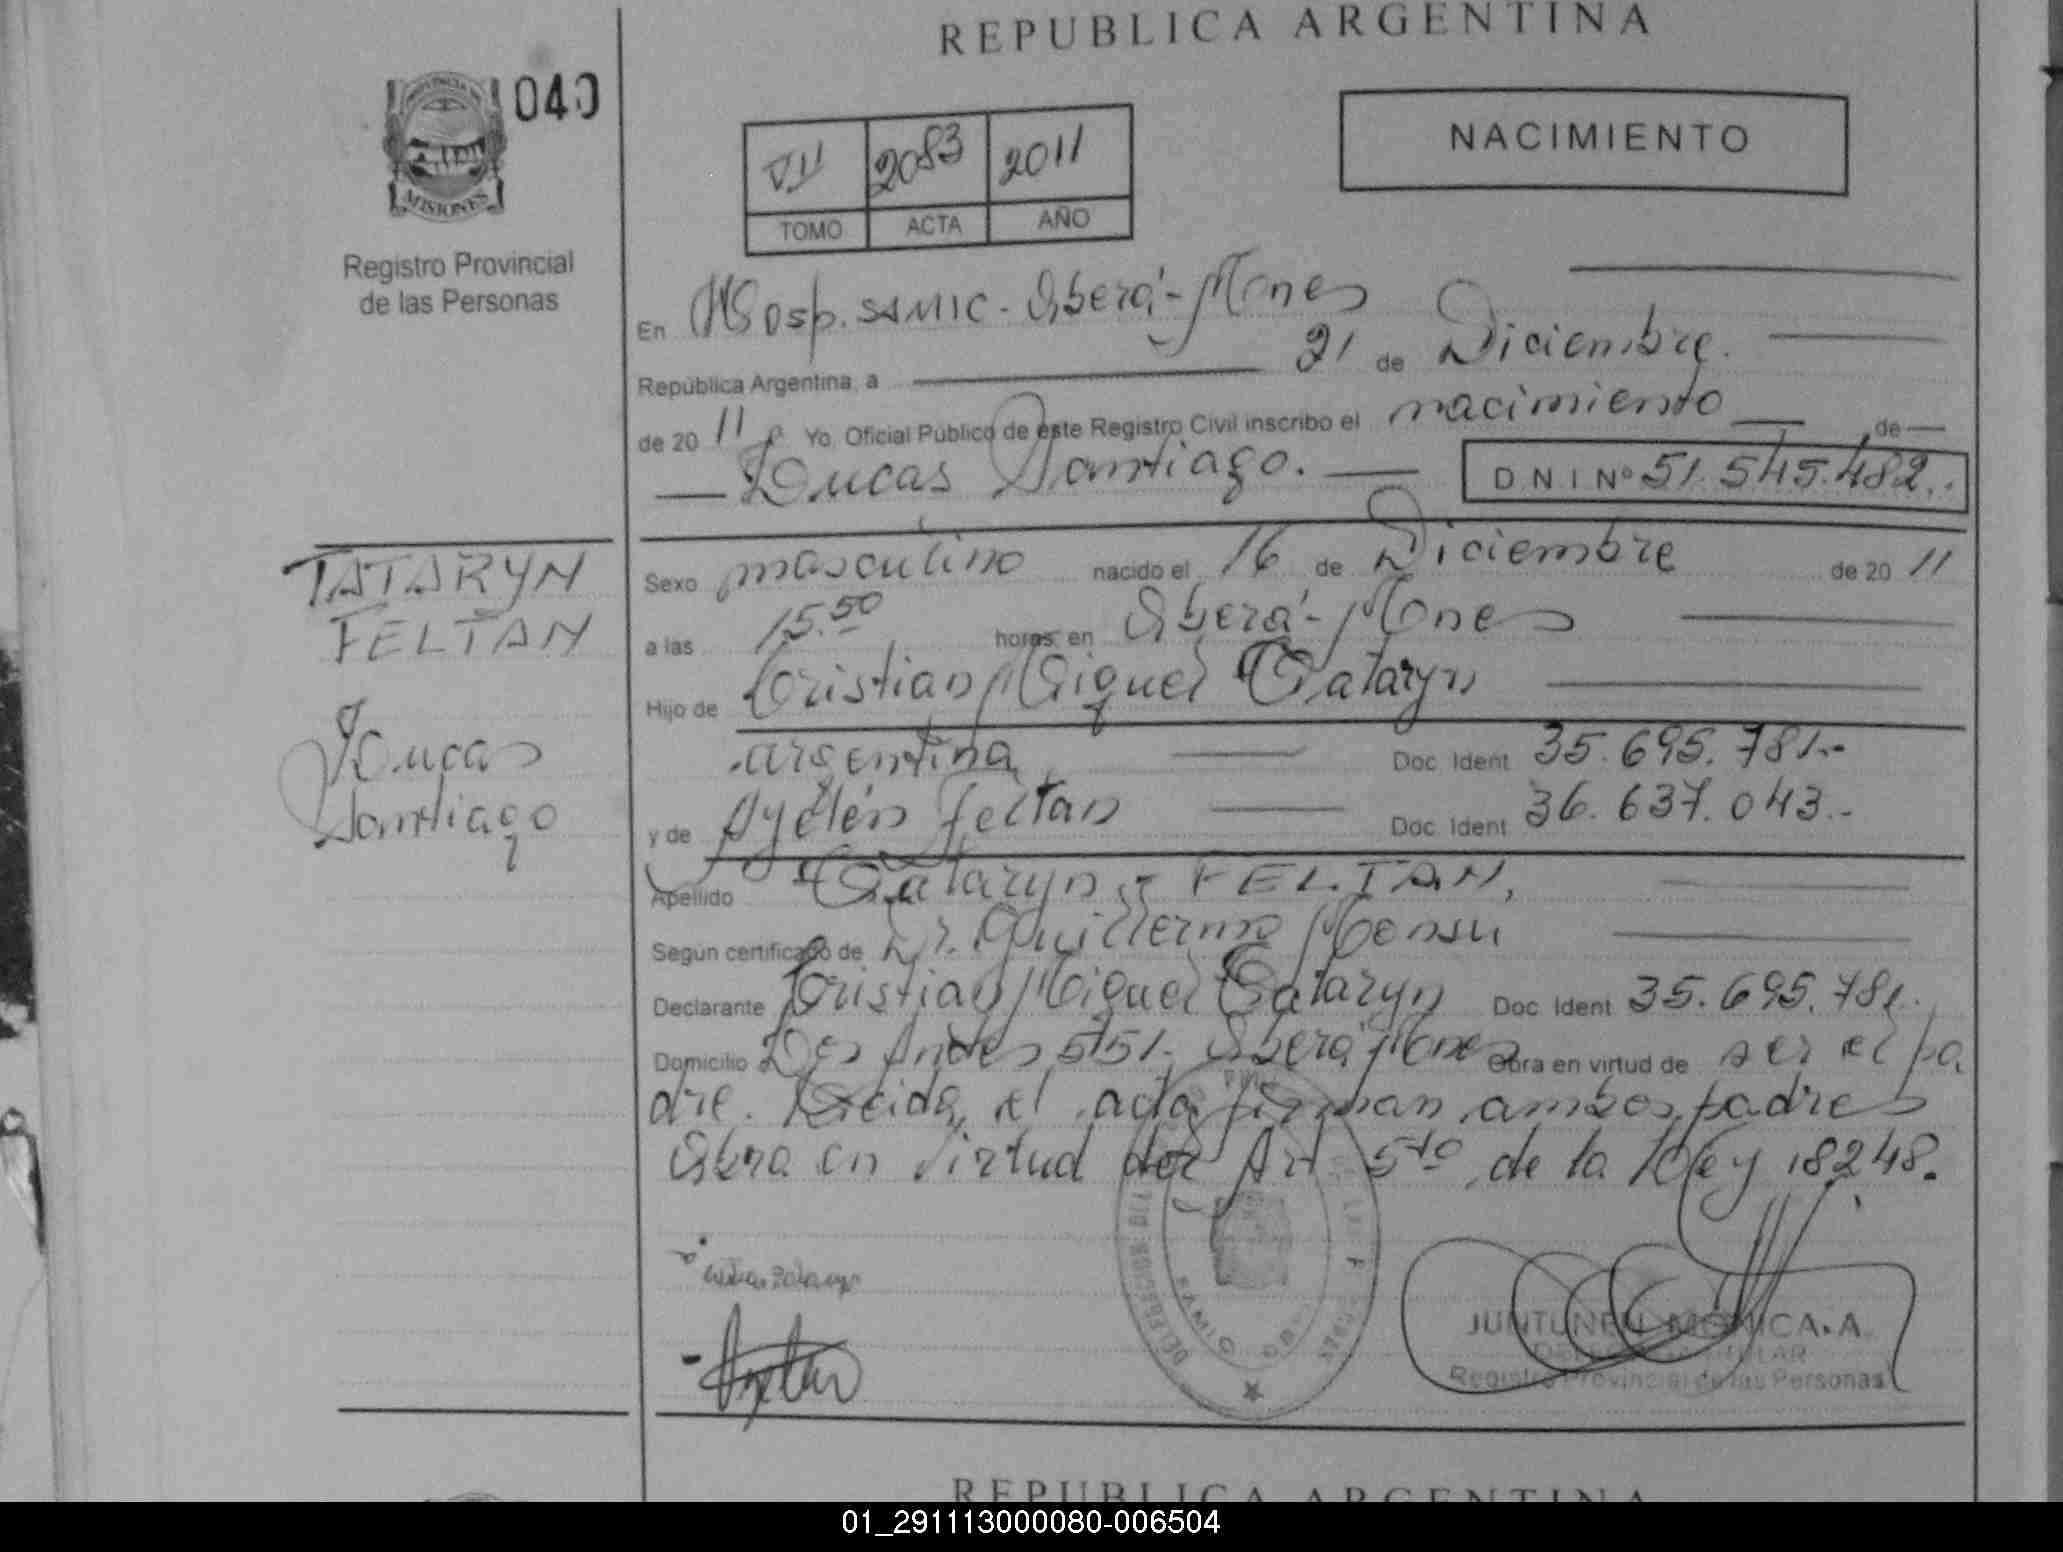 REPUBLICA ARGENTINA
040
NACIMIENTO
VII 2083 2011
TOMO ACTA AÑO
MISIONES
Registro Provincial
de las Personas
En Hosp. SAMIC - Oberá - Mnes
República Argentina, a 21 de Diciembre.
de 2011 Yo, Oficial Público de este Registro Civil inscribo el nacimiento de
Lucas Santiago. D N I Nº 51.545.482.
TATARYN
FELTAN
Lucas
Santiago
Sexo masculino nacido el 16 de Diciembre de 2011
a las 15.50 horas en Oberá - Mnes
Hijo de Cristian Miguel Tataryn
argentina Doc. Ident 35.695.781.-
y de Ayelén Feltan Doc. Ident 36.637.043.-
Apellido Tataryn - FELTAN,
Según certificado de Dr. Guillermo Mensu
Declarante Cristian Miguel Tataryn Doc. Ident 35.695.781.
Domicilio Los Andes 551. Oberá Mnes Obra en virtud de ser el pa
dre. Leida el acta firman ambos padres
Obra en virtud del Art 5to de la Ley 18248.
JUNTUNEN MONICA A.
Registro Provincial de las Personas
REPUBLICA ARGENTINA
01_291113000080-006504